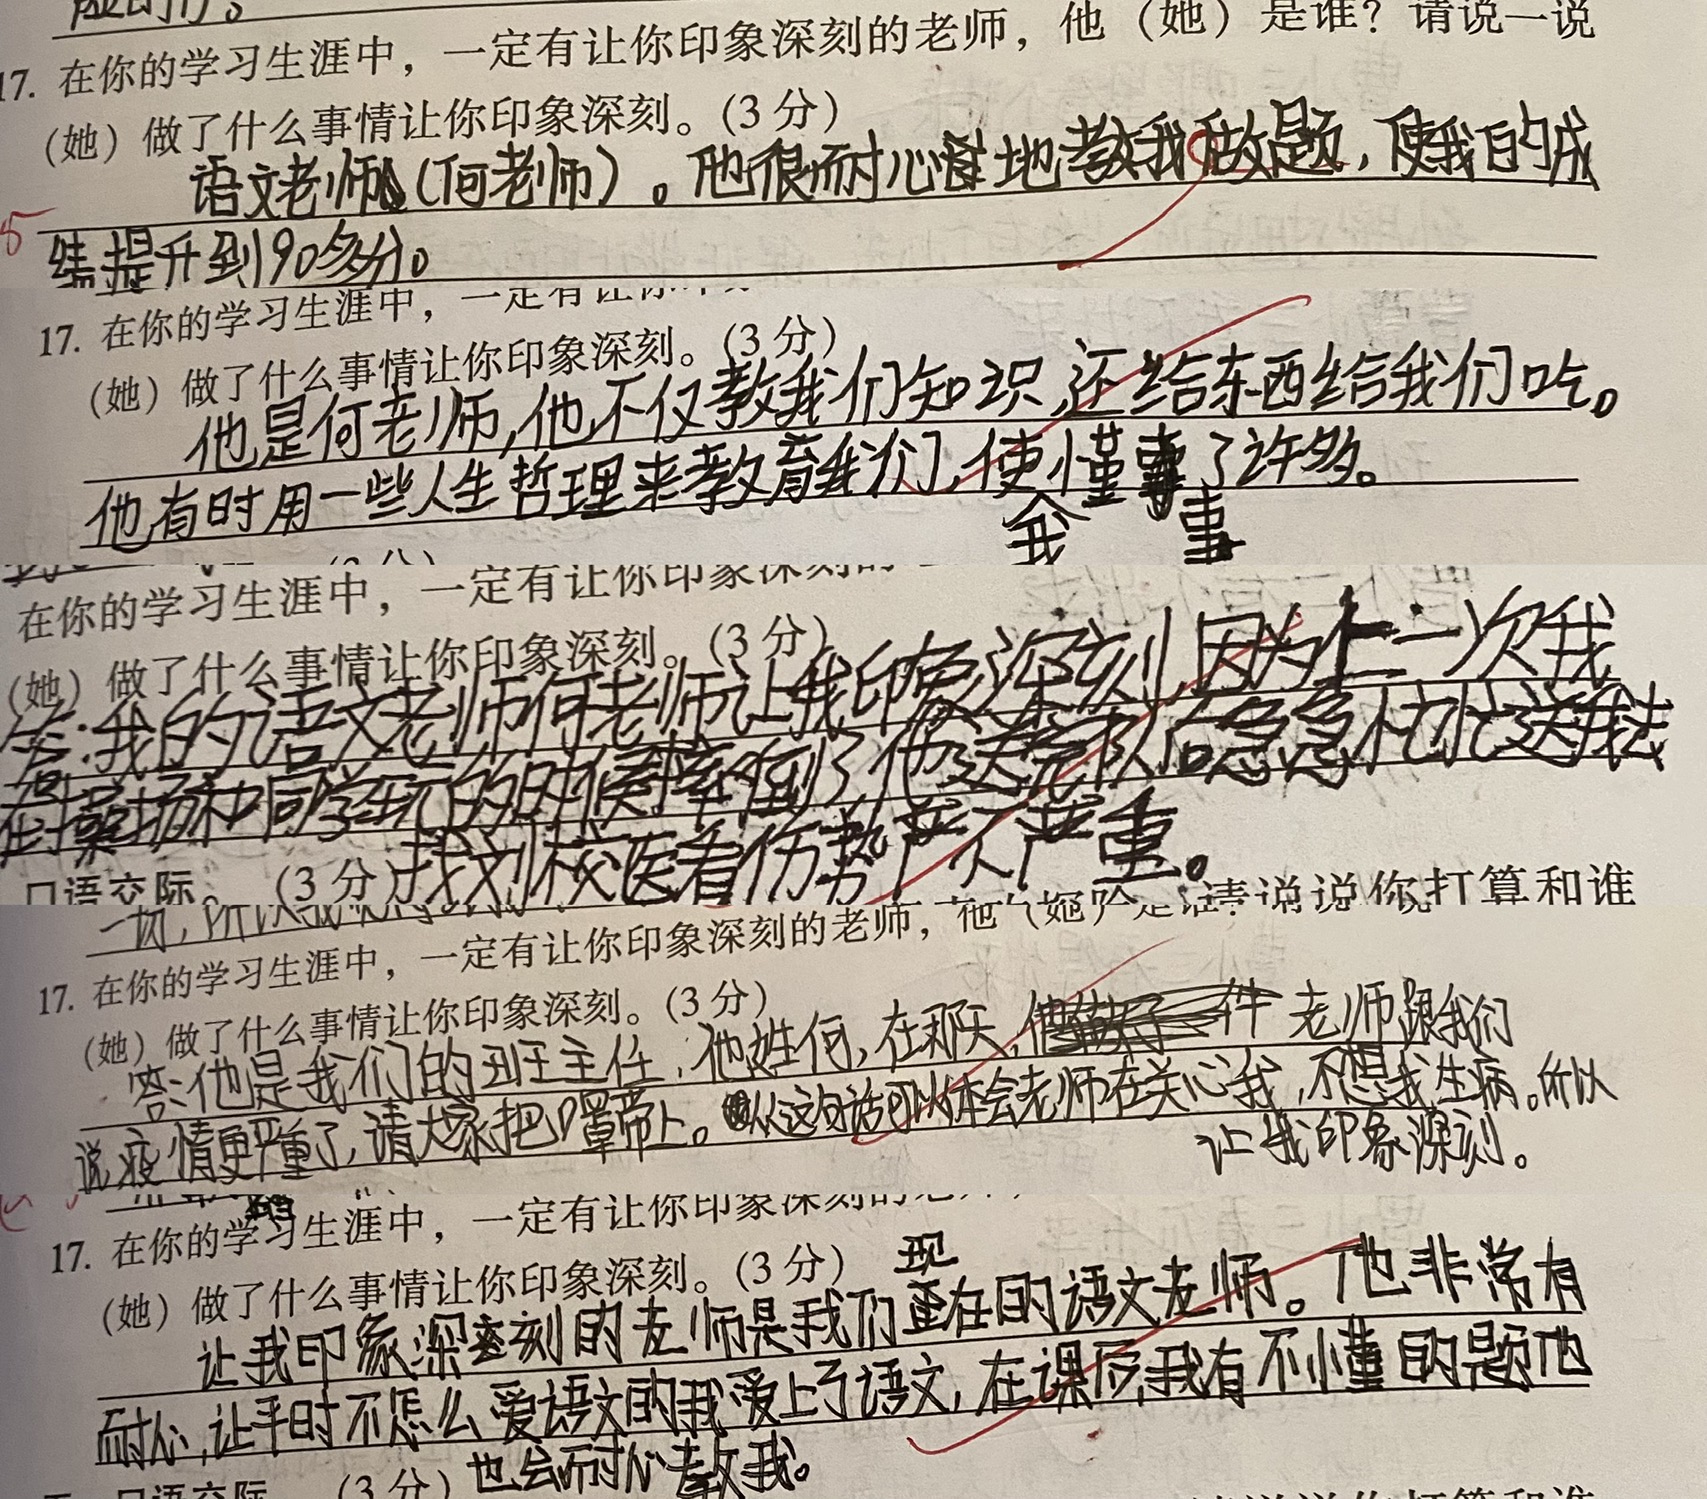 17. 在你的学习生涯中，一定有让你印象深刻的老师，他（她）是谁？请说一说
（她）做了什么事情让你印象深刻。(3分)
语文老师（何老师）。他很耐心地教我做题，使我的成
绩提升到90多分。
17. 在你的学习生涯中，一定有让你印象
（她）做了什么事情让你印象深刻。(3分)
他是何老师，他不仅教我们知识，还给东西给我们吃。
他有时用一些人生哲理来教育我们，使我懂事了许多。
在你的学习生涯中，一定有让你印象深刻的
（她）做了什么事情让你印象深刻。(3分)
答：我的语文老师何老师让我印象深刻，因为上一次我
在操场和同学玩的时候摔倒了，他送完队后急急忙忙送我去
找刘校医看伤势严不严重。
口语交际。(3分) 请说说你打算和谁
17. 在你的学习生涯中，一定有让你印象深刻的老师，他（她）是谁
（她）做了什么事情让你印象深刻。(3分)
答：他是我们的班主任，他姓何，在那天，老师跟我们
说疫情更严重了，请大家把口罩带上。从这句话可以体会老师在关心我，不想我生病。所以
让我印象深刻。
17. 在你的学习生涯中，一定有让你印象深刻的老师
（她）做了什么事情让你印象深刻。(3分)
让我印象深刻的老师是我们现在的语文老师。他非常有
耐心，让平时不怎么爱语文的我爱上了语文，在课后，我有不懂的题他
也会耐心教我。
口语交际。(3分)